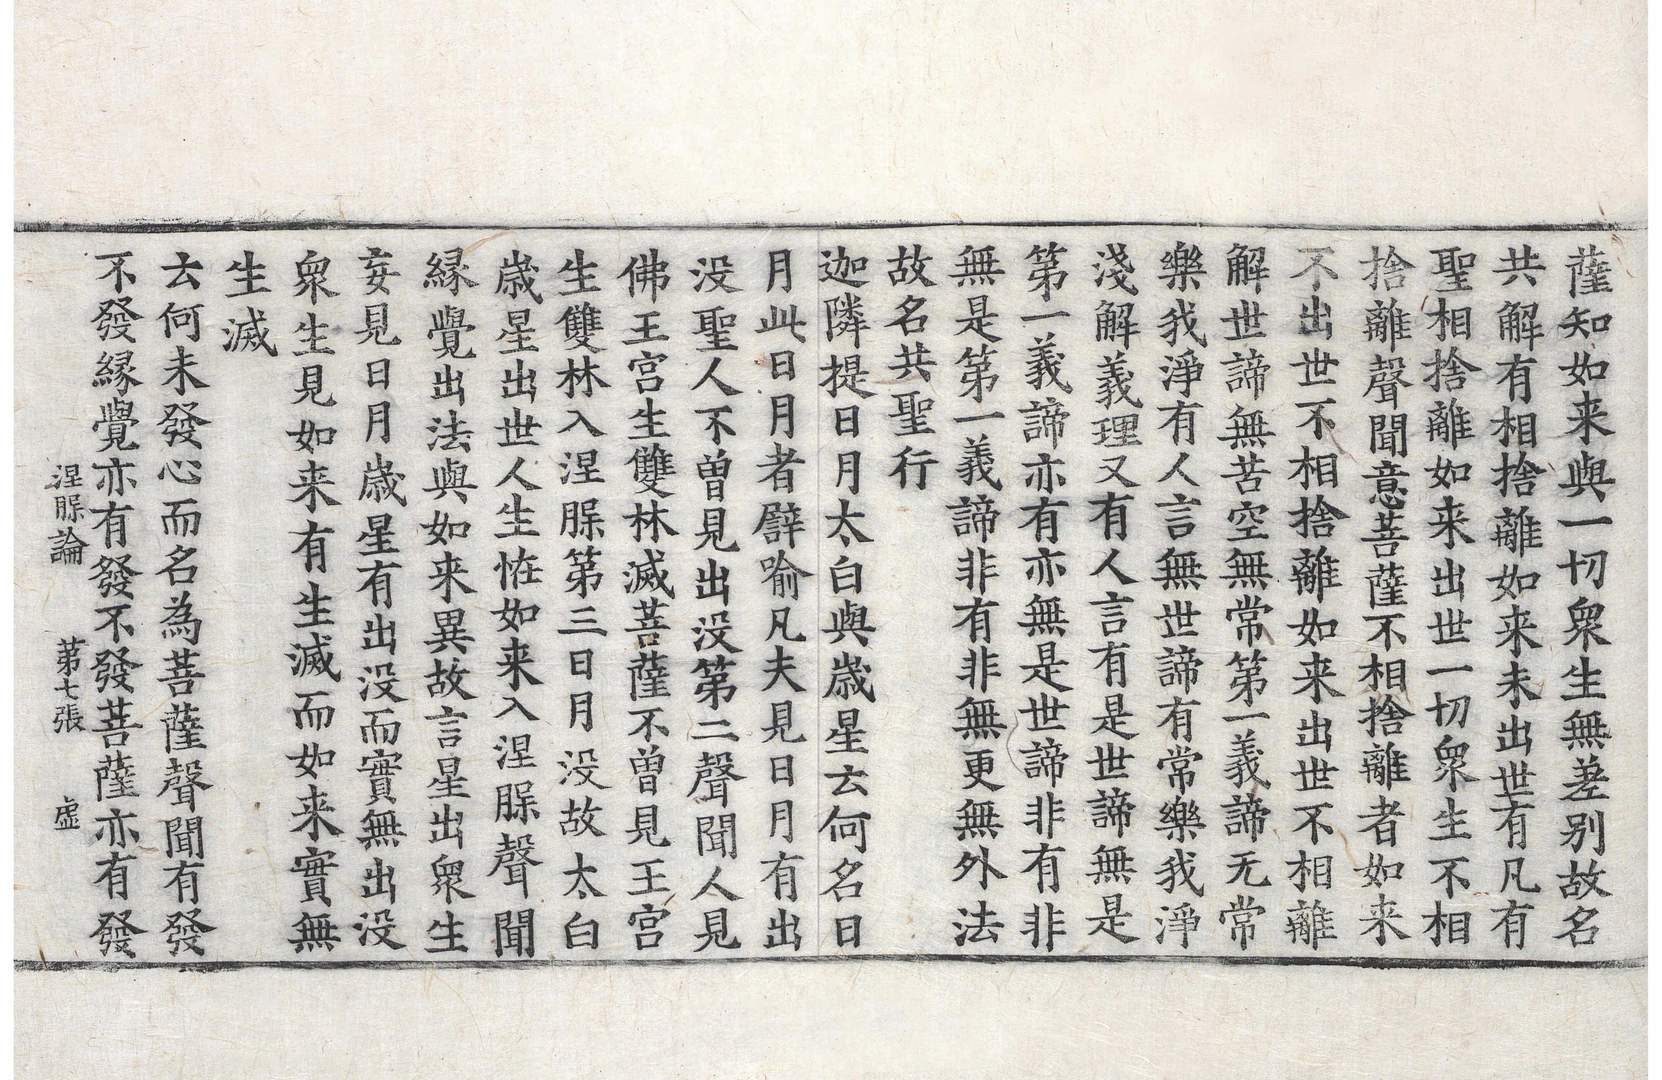 薩知如来與一切衆生無差别故名
共解有相捨離如来未出世有凡有
聖相捨離如来出世一切衆生不相
捨離聲聞意菩薩不相捨離者如来
不出世不相捨離如来出世不相離
解世諦無苦空無常第一義諦无常
樂我淨有人言無世諦有常樂我淨
淺解義理又有人言有是世諦無是
第一義諦亦有亦無是世諦非有非
無是第一義諦非有非無更無外法
故名共聖行
迦隣提日月太白與歳星云何名日
月此日月者譬喻凡夫見日月有出
没聖人不曽見出没第二聲聞人見
佛王宫生雙林滅菩薩不曽見王宫
生雙林入涅脲第三日月没故太白
歳星出世人生恠如来入涅脲聲聞
縁覺出法與如来異故言星出衆生
妄見日月歳星有出没而實無出没
衆生見如来有生滅而如来實無
生滅
云何未發心而名為菩薩聲聞有發
不發縁覺亦有發不發菩薩亦有發
涅脲論 第七張 虚